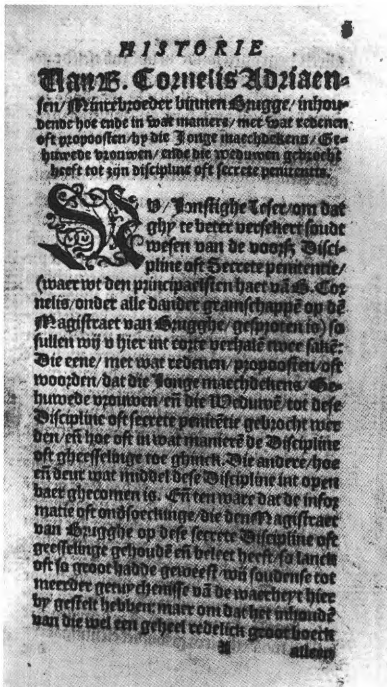 HISTORIE
Van B. Cornelis Adriaen-
sen/Minrebroeder binnen Brugge/inhou-
dende hoe ende in wat maniere/met wat redenen
oft propoosten/hy die Jonge maechdekens/Ge-
huwede vrouwen/ende die weduwen gebrocht
heeft tot zijn discipline oft secrete penitentie.
NV/Jonstighe Leser/om dat
ghy te beter versekert soudt
wesen van de voorsz Disci-
pline oft Secrete penitentie/
(waer wt den principaelsten haet vā B. Cor
nelis/onder alle dander gramschappē op dē
Magistraet van Brugghe/gesproten is) so
sullen wij v hier int corte verhalē twee sakē:
Die eene/met wat redenen/propoosten/oft
woorden/dat die Jonge maechdekens/Ge-
huwede vrouwen/eñ die Weduwē/tot dese
Discipline oft secrete penitētie gebrocht wer
den/eñ hoe oft in wat manierē de Discipline
oft gheesselinge toe ghinck. Die andere/hoe
eñ deur wat middel dese Disciplinē int open
baer ghecomen is. Eñ ten waer dat de infor
matie oft ondsoeckinge/die den Magistraet
van Brugghe op dese secrete Discipline oft
geesselinge gehoudē eñ beleet heeft/so lanck
oft so groot hadde geweest/wij soudense tot
meerder getuychenisse vā de waerheyt hier
by gestelt hebben: maer om dat het inhoudē
van die wel een geheel redelick groot boeck
alleen